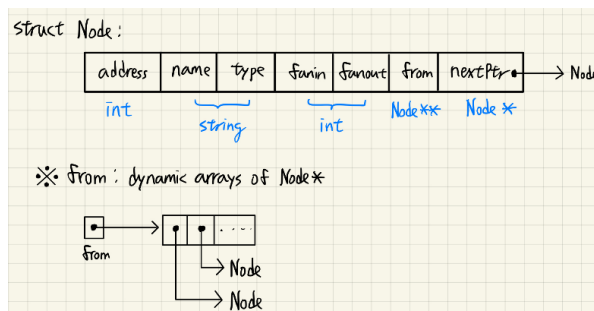 struct Node:
address name type fanin fanout from nextPtr Node
int string int Node** Node*
※ from: dynamic arrays of Node*
from
Node
Node